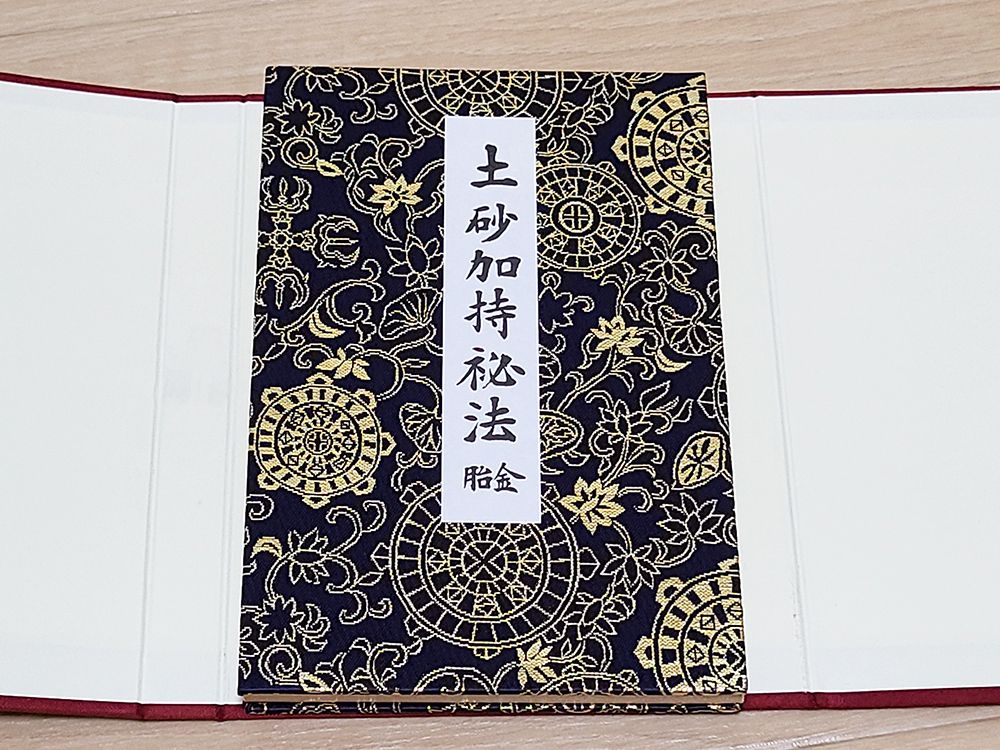 土砂加持祕法
金胎